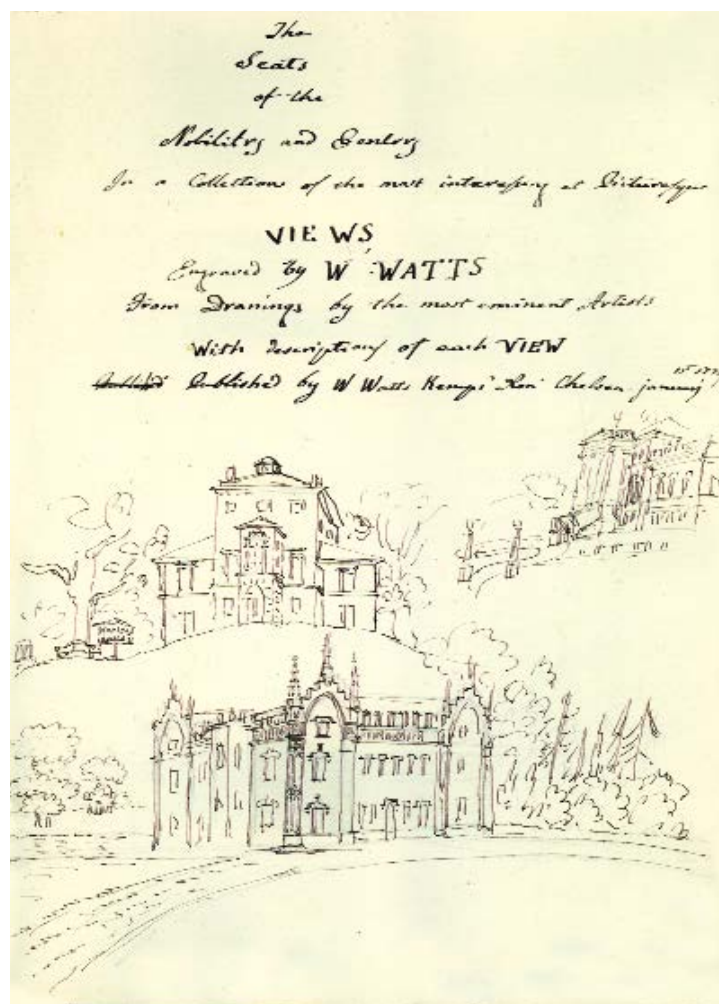 The
Seats
of the
Nobility and Gentry
In a Collection of the most interesting et Picturesque
VIEWS
Engraved by W WATTS
From Drawings by the most eminent Artists
With descriptions of each VIEW
Published by W Watts Kemps Row Chelsea january 1st